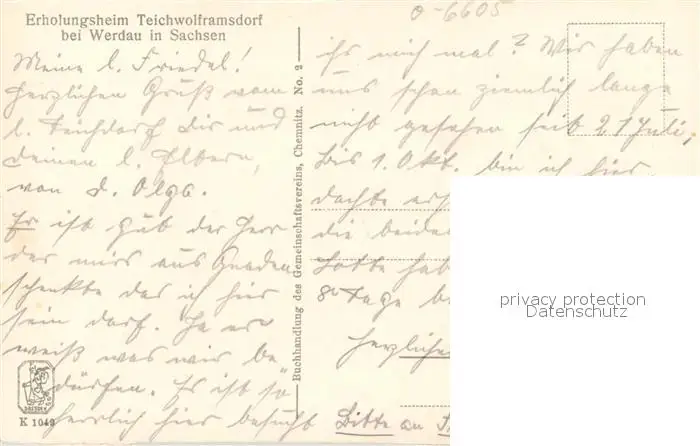 Erholungsheim Teichwolframsdorf
bei Werdau in Sachsen
o-6605
Meine l. Friedel!
Herzlichen Gruß vom
l. Teichdorf dir und
deinen l. Eltern,
von d. Olga.
Er ist gut der Herr
der mirs aus Gnaden
schenkte das ich hier
sein darf. Ja er
weiß was wir be
dürfen. Es ist so
herrlich hier besucht
Buchhandlung des Gemeinschaftsvereins, Chemnitz. No. 2
ihr mich mal? Wir haben
uns schon ziemlich lange
nicht gesehen seit 21 Juli,
bis 1. Okt. bin ich hier.
dachte
die beiden
Lotte
8 Tage
Herzlichen
Bitte an
K 1049
privacy protection
Datenschutz